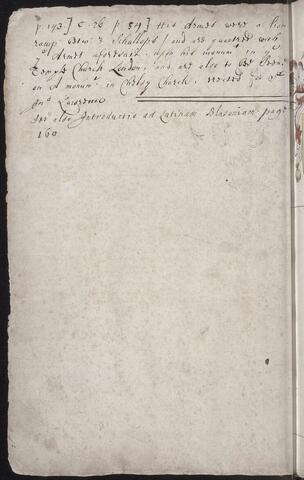 p. 193] C. 26 p. 84] His Armes were a Lion
ramp: Btw: 3 Schallops / and are quartred with
Armes aforesaid, upon his monumt in ye
Temple Church London, and are also to be seene
on A monumt in Chelsey Church, erected for
Lawrence
See also Introductio ad Latinam Blasoniam pag:
160